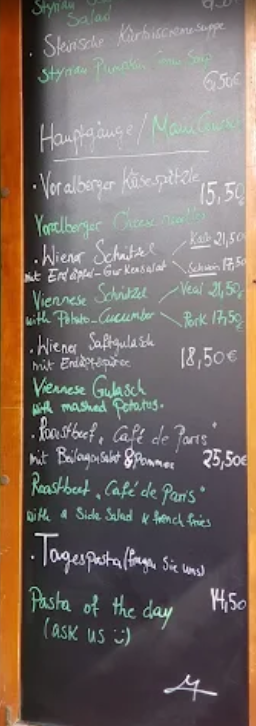 Styrian
Salad
· Steirische Kürbiscremesuppe
Styrian Pumpkin Creme Soup
6,50€
Hauptgänge / Main Courses
· Voralberger Käsespätzle
15,50€
Voralberger Cheese noodles
· Wiener Schnitzel Kalb 21,50€
mit Erdäpfel-Gurkensalat Schwein 17,50€
Viennese Schnitzel Veal 21,50€
with Potato-Cucumber Pork 17,50€
· Wiener Saftgulasch 18,50€
mit Erdäpfelpüree
Viennese Gulasch
with mashed Potatos.
· Roastbeef „Café de Paris"
mit Beilagensalat & Pommes 25,50€
Roastbeef „Café de Paris"
with a Side Salad & french fries
· Tagespasta (fragen Sie uns)
Pasta of the day 14,50
(ask us :-)